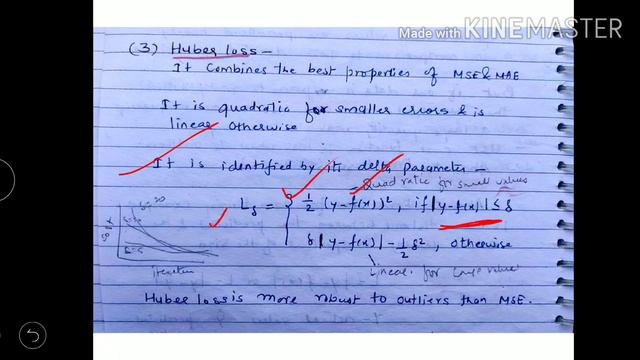 Made with KINEMASTER
(3) Huber loss -
It combines the best properties of MSE & MAE
It is quadratic for smaller errors & is
linear otherwise
It is identified by its delta parameter -
Quadratic for small values
L_δ = { 1/2 (y-f(x))², if |y-f(x)| ≤ δ
δ |y-f(x)| - 1/2 δ², otherwise
Linear for large values
iteration
Huber loss is more robust to outliers than MSE.